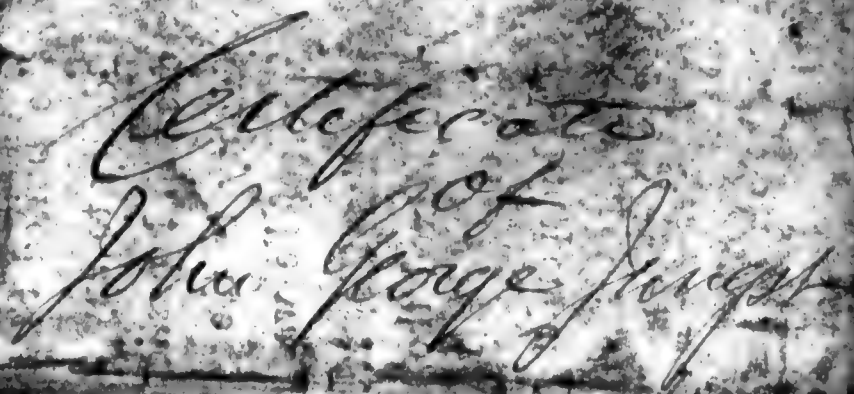 Certificate
of
John George